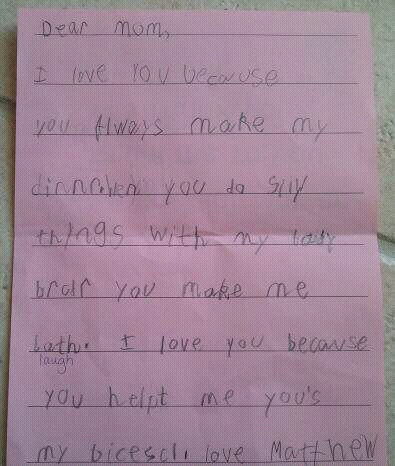 Dear mom,
I love YOU because
you Always make my
dinnr.when you do silly
things with my baby
brdr you make me
lath. I love you because
laugh
you helpt me you's
my bicescl. love Matthew